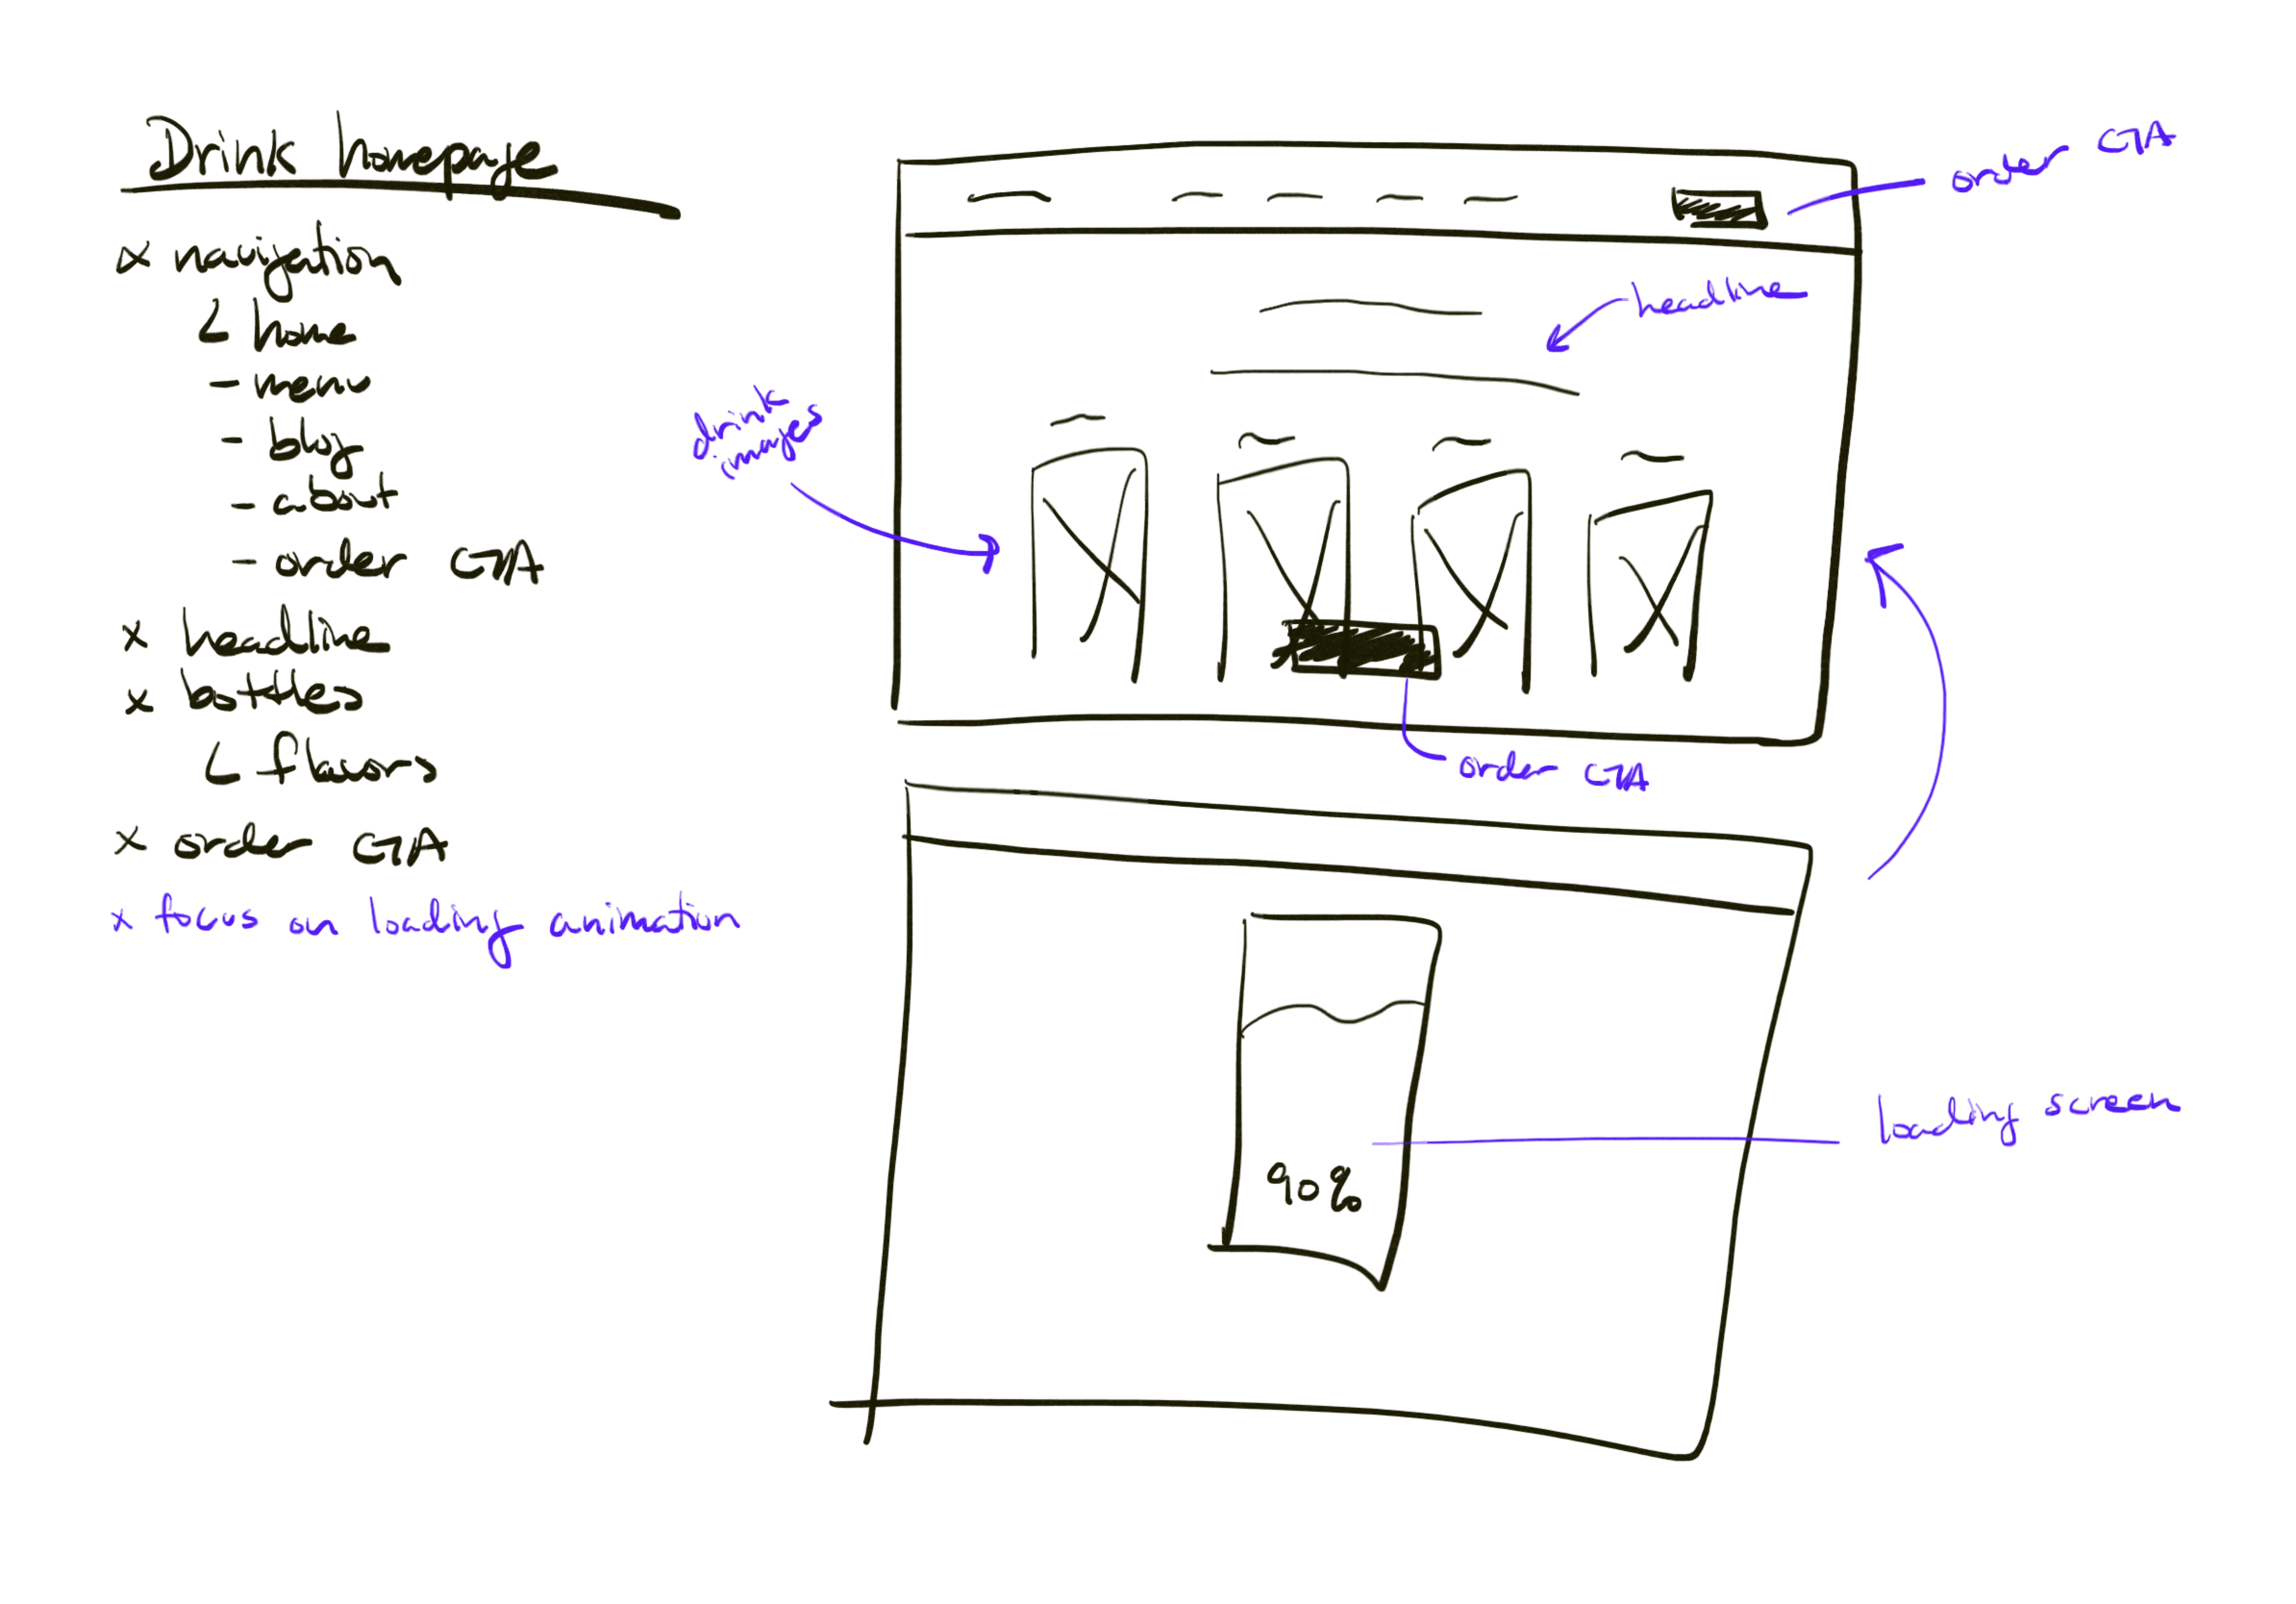 Drink homepage
x navigation
home
- menu
- blog
- about
- order CTA
x headline
x bottles
flavors
x order CTA
x focus on loading animation
order CTA
headline
drink
images
order CTA
90%
loading screen